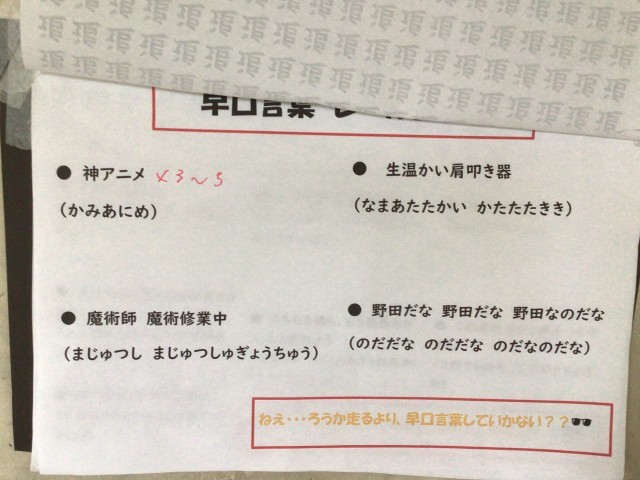 早口言葉
● 神アニメ ×3～5
(かみあにめ)
● 生温かい肩叩き器
(なまあたたかい かたたたきき)
● 魔術師 魔術修業中
(まじゅつし まじゅつしゅぎょうちゅう)
● 野田だな 野田だな 野田なのだな
(のだだな のだだな のだなのだな)
ねえ・・・ろうか走るより、早口言葉していかない？？🕶